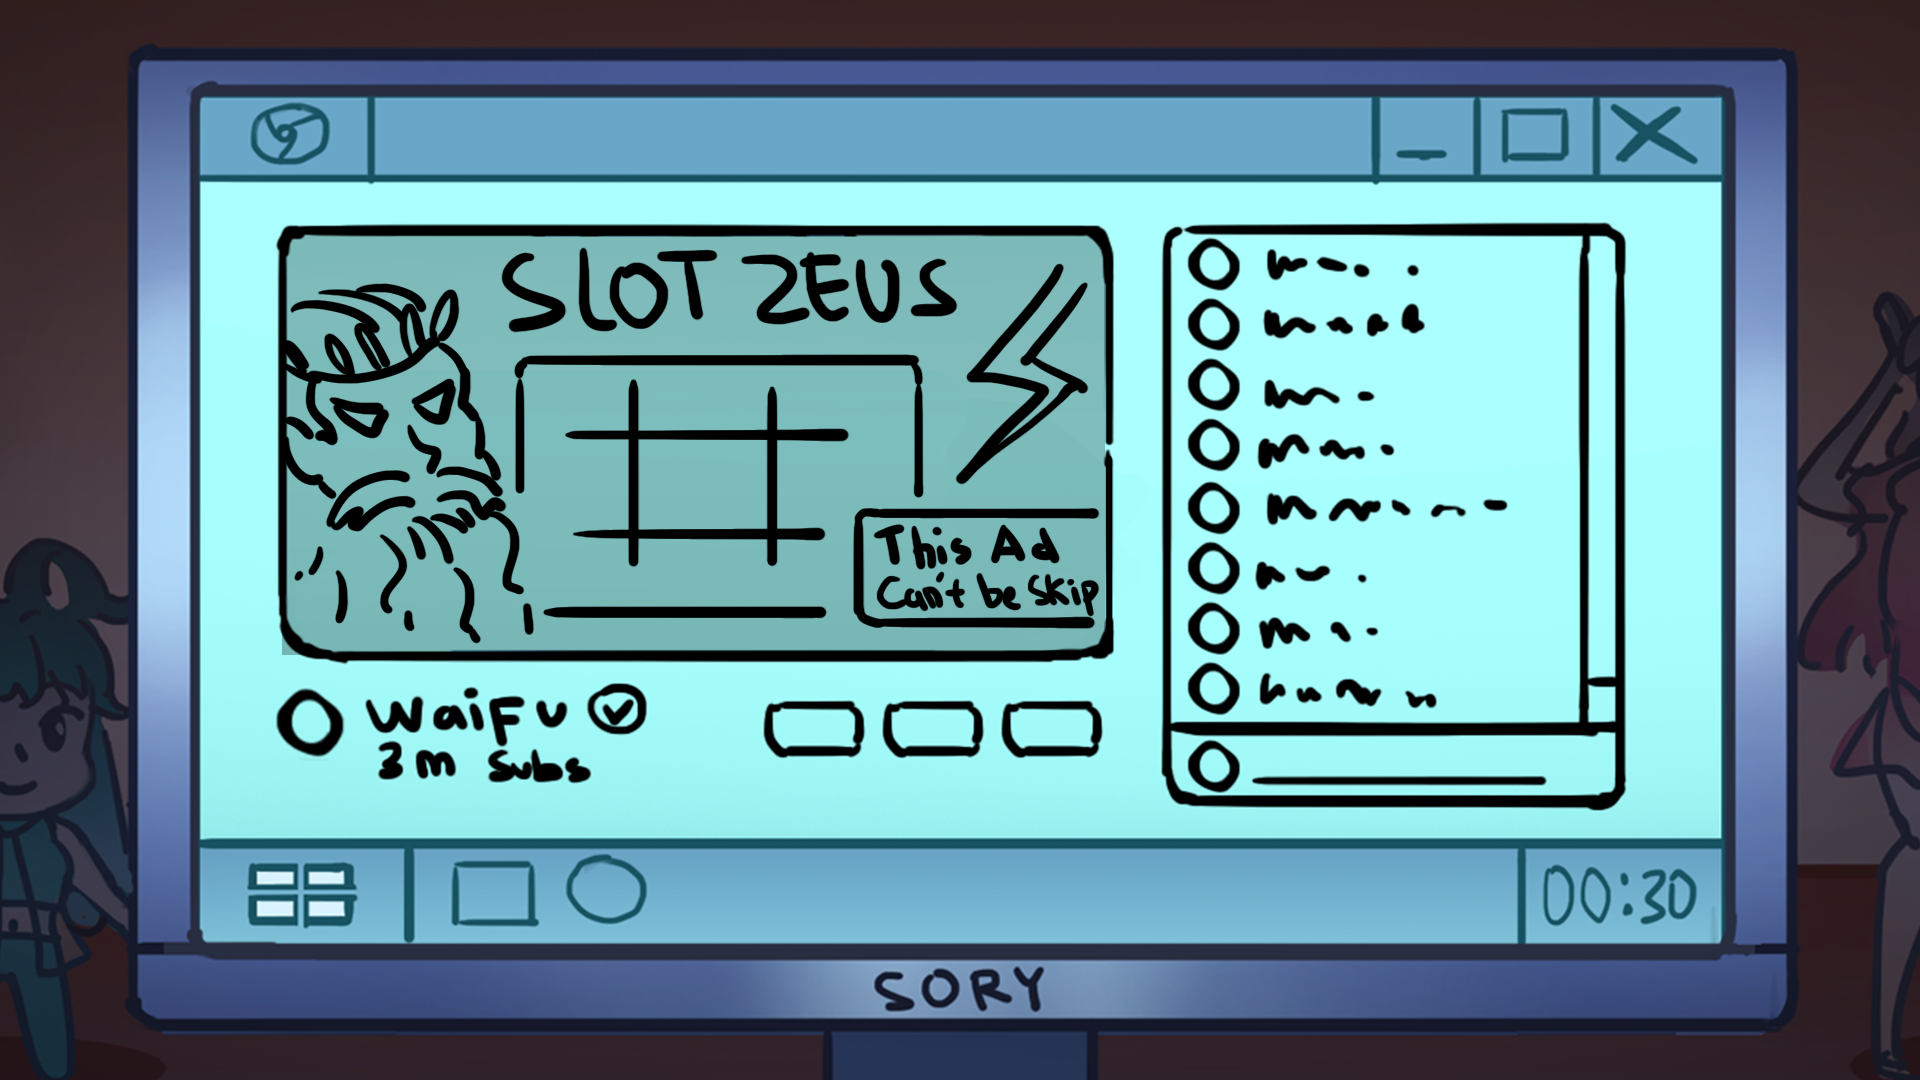 SLOT ZEUS
This Ad
Can't be Skip
WaiFu
3m Subs
00:30
SORY